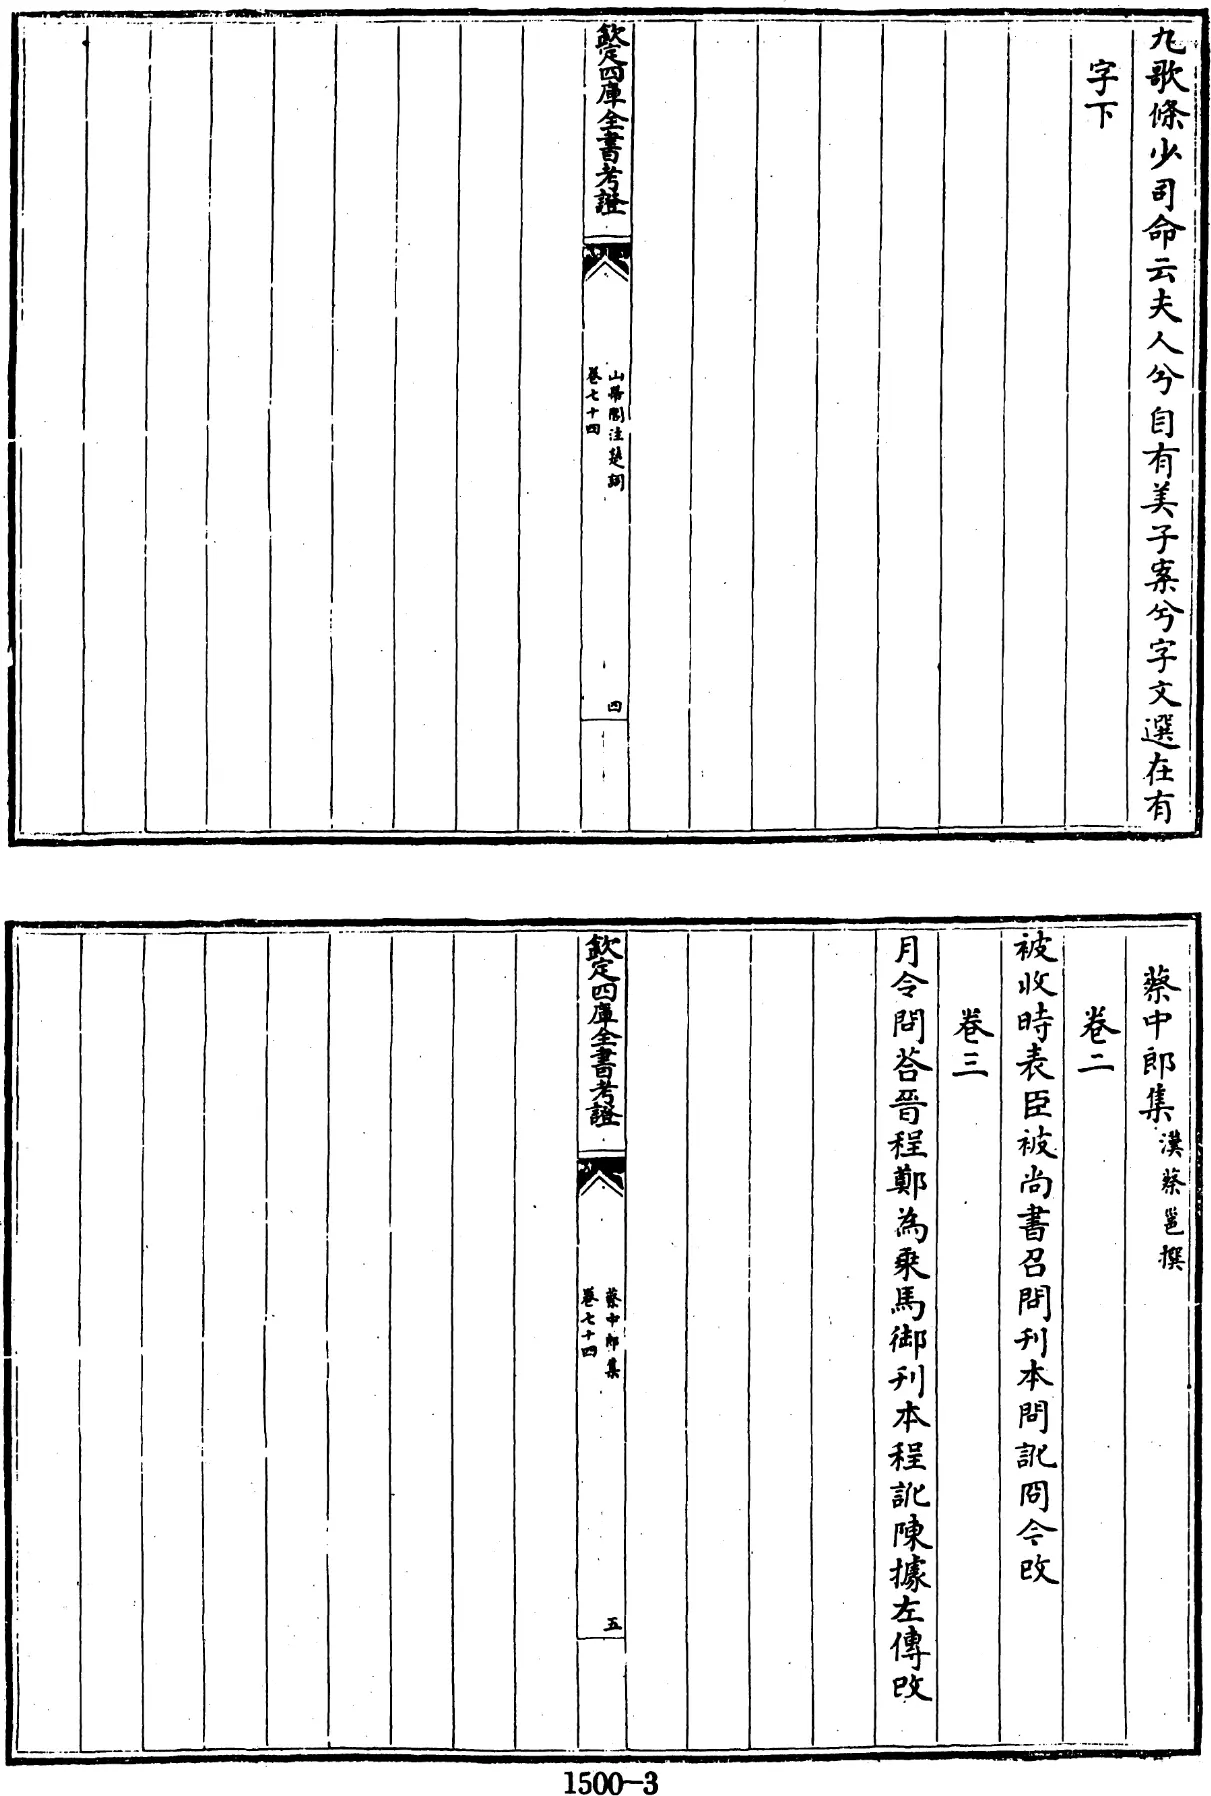 九歌條少司命云夫人兮自有美子案兮字文選在有
字下
欽定四庫全書考證
山帶閣注楚詞
卷七十四
四
蔡中郎集漢蔡邕撰
卷二
被收時表臣被尚書召問刊本問訛罔今改
卷三
月令問荅晉程鄭為乗馬御刊本程訛陳據左傳改
欽定四庫全書考證
蔡中郎集
卷七十四
五
1500-3